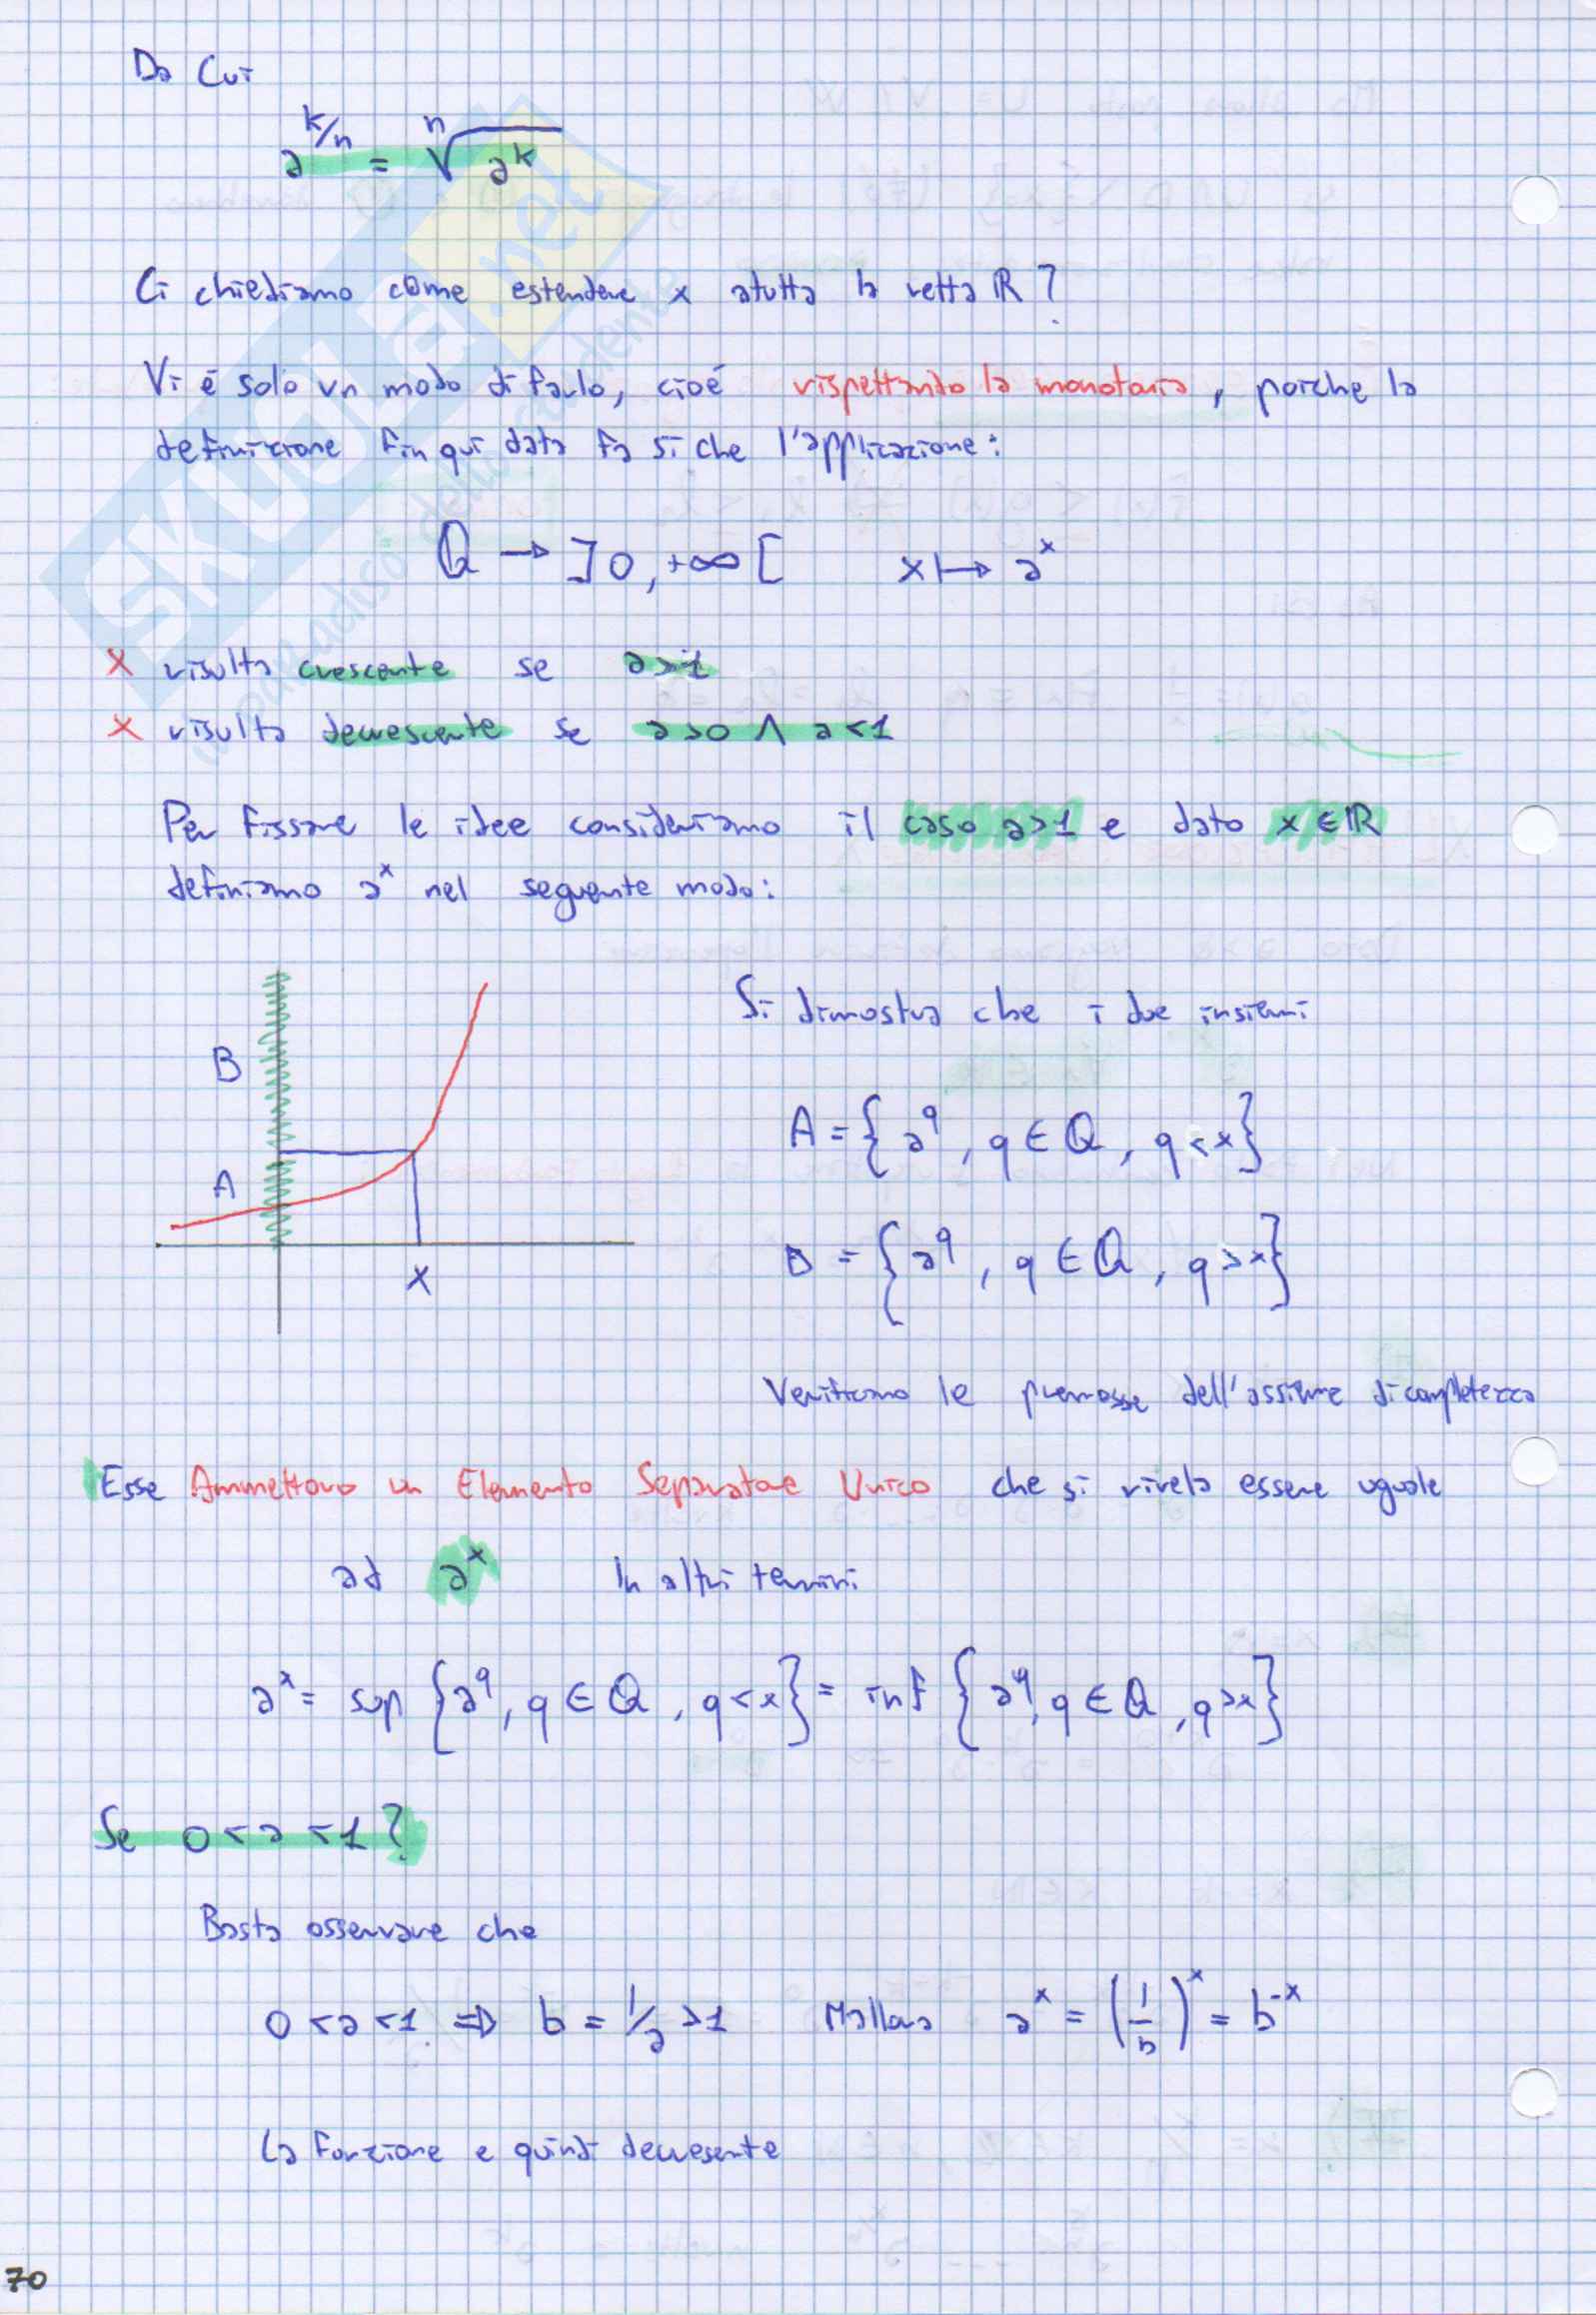 Da Cui
a^{k/n} = \sqrt[n]{a^k}
Ci chiediamo come estendere x atutta la retta ℝ?
Vi é solo un modo di farlo, cioé rispettando la monotonia, poiche la
definizione fin qui data fa si che l'applicazione:
ℚ → ]0,+∞[ x ↦ a^x
X risulta crescente se a>1
X risulta decrescente se a>0 ∧ a<1
Per fissare le idee consideriamo il caso a>1 e dato x ∈ ℝ
definiamo a^x nel seguente modo:
Si dimostra che i due insiemi
B
A = {a^q, q ∈ ℚ, q<x}
A
B = {a^q, q ∈ ℚ, q>x}
x
Verificano le premesse dell'assioma di completezza
Esse Ammettono un Elemento Separatore Unico che si rivela essere uguale
ad a^x In altri termini
a^x = sup {a^q, q ∈ ℚ, q<x} = inf {a^q, q ∈ ℚ, q>x}
Se 0<a<1?
Basta osservare che
0<a<1 ⇒ b = 1/a >1 Ma allora a^x = (1/b)^x = b^{-x}
La funzione e quindi decrescente
70
SKUOLA.net